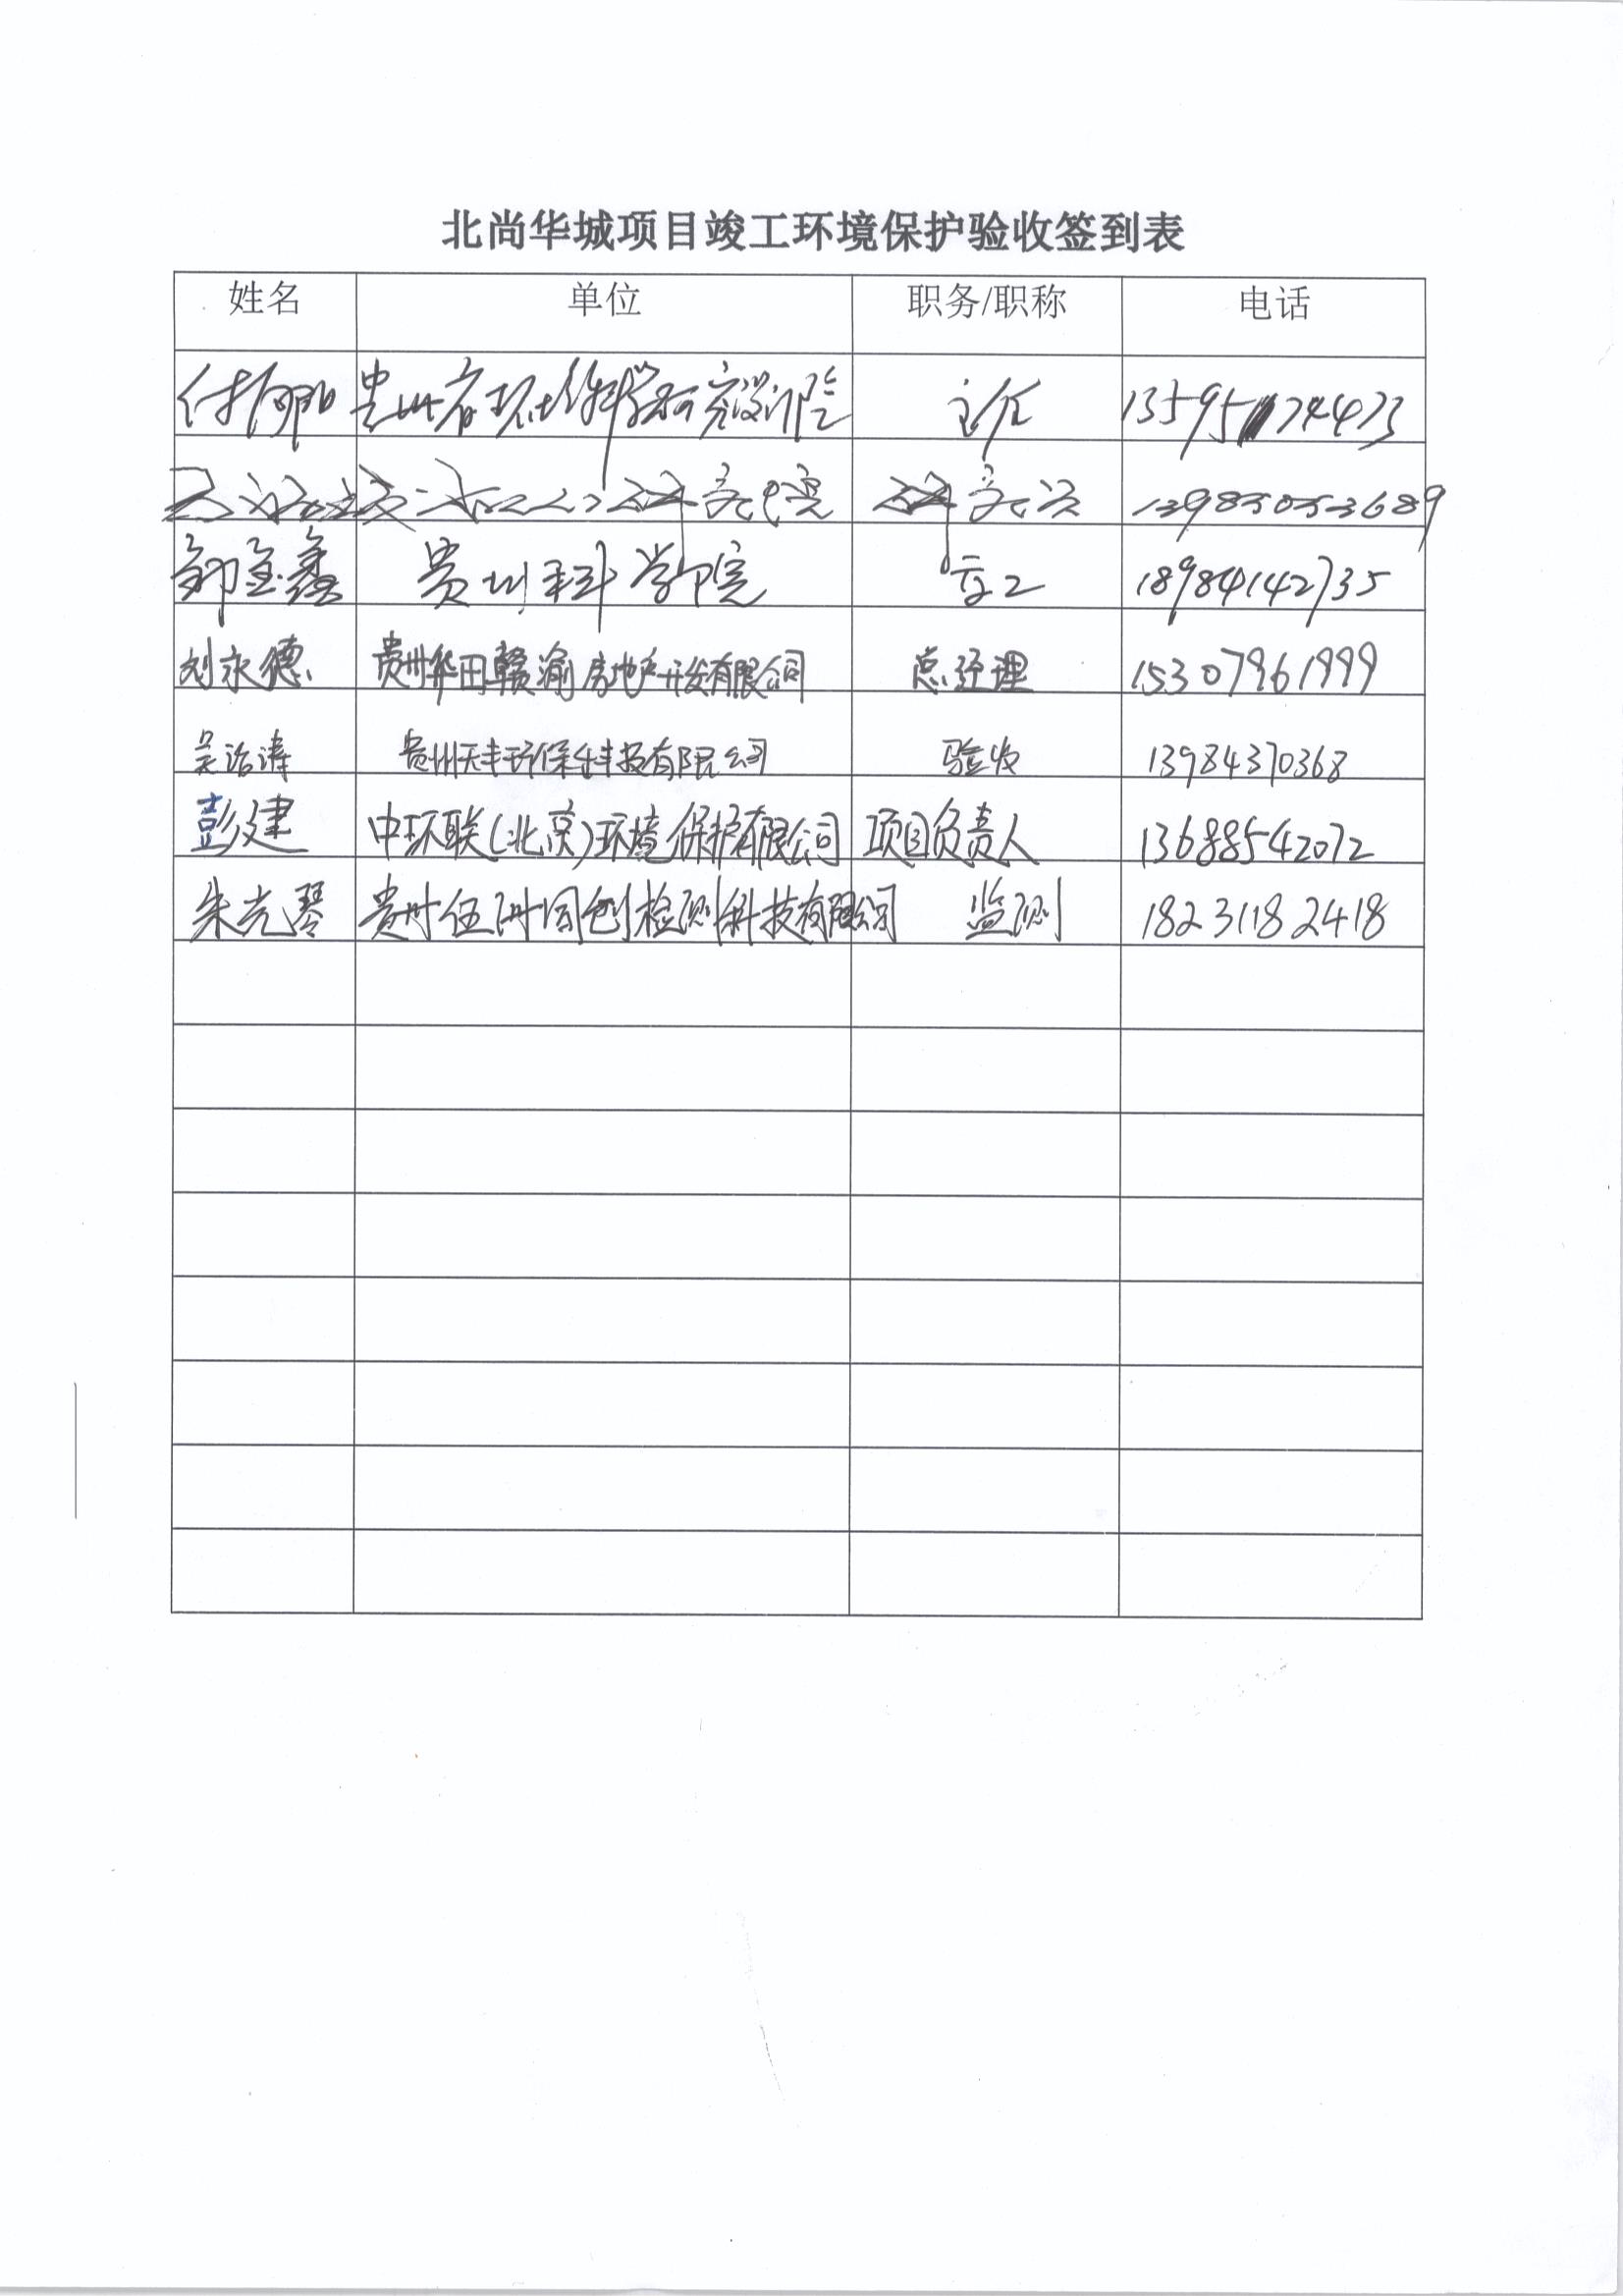 北尚华城项目竣工环境保护验收签到表
姓名 单位 职务/职称 电话
贵州省环境科学研究设计院 主任 1359574473
研究院 研究员 13985053689
邹金鑫 贵州科学院 高工 18984142735
刘永德 贵州华田赣渝房地产开发有限公司 总经理 15307961999
吴治涛 贵州天丰环保科技有限公司 验收 13984370368
彭建 中环联(北京)环境保护有限公司 项目负责人 13688542072
朱光琴 贵州伍洲同创检测科技有限公司 监测 18231182418